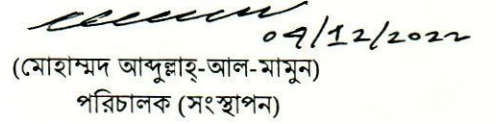 04/12/2022
(মোহাম্মদ আব্দুল্লাহ্-আল-মামুন)
পরিচালক (সংস্থাপন)